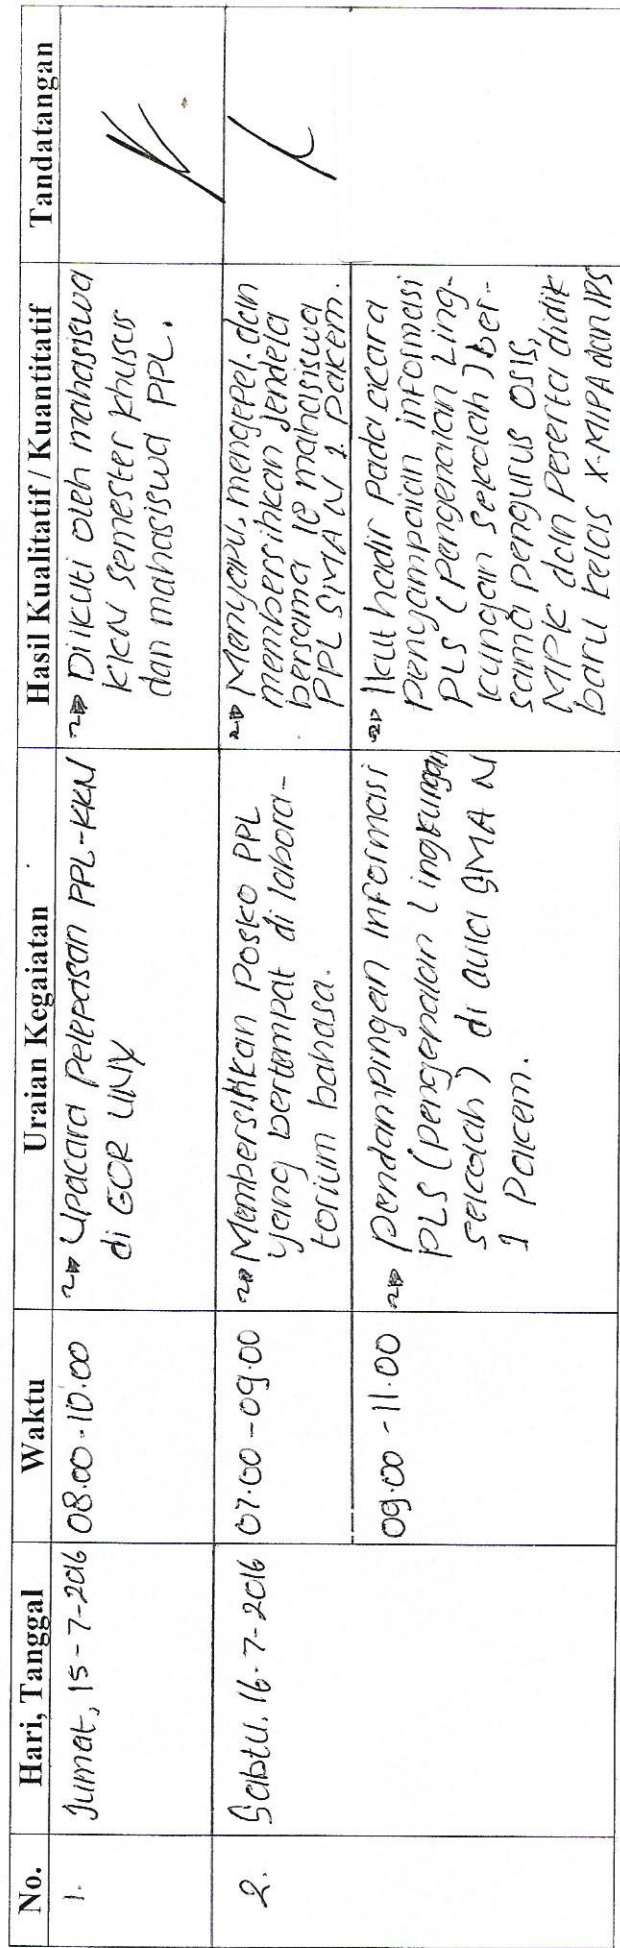 No. Hari, Tanggal Waktu Uraian Kegaiatan Hasil Kualitatif / Kuantitatif Tandatangan
1. Jumat, 15-7-2016 08.00-10.00
Upacara Pelepasan PPL-KKN
di GOR UNY
Diikuti oleh mahasiswa
KKN semester khusus
dan mahasiswa PPL.
2. Sabtu, 16-7-2016 07.00-09.00
Membersihkan Posko PPL
yang bertempat di labora-
torium bahasa.
Menyapu, mengepel, dan
membersihkan jendela
bersama mahasiswa
PPL SMA N 1 Pakem.
09.00-11.00
Pendampingan informasi
PLS (pengenalan Lingkungan
sekolah) di aula SMA N
1 Pakem.
Ikut hadir pada acara
penyampaian informasi
PLS (Pengenalan Ling-
kungan Sekolah) ber-
sama pengurus OSIS,
MPK dan Peserta didik
baru kelas X-MIPA dan IPS